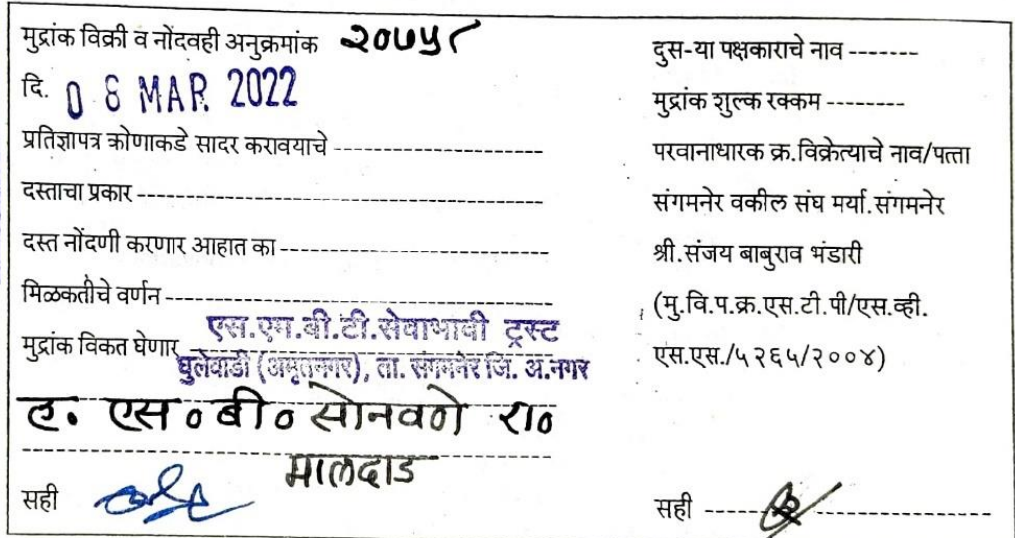 मुद्रांक विक्री व नोंदवही अनुक्रमांक २०७५८
दि. 08 MAR 2022
प्रतिज्ञापत्र कोणाकडे सादर करावयाचे --------------------
दस्ताचा प्रकार --------------------
दस्त नोंदणी करणार आहात का --------------------
मिळकतीचे वर्णन --------------------
एस.एम.बी.टी.सेवाभावी ट्रस्ट
मुद्रांक विकत घेणार
घुलेवाडी (अमृतनगर), ता. संगमनेर जि. अ.नगर
ह. एस० बी० सोनवणे रा०
मालदाड
सही
दुस-या पक्षकाराचे नाव -------
मुद्रांक शुल्क रक्कम --------
परवानाधारक क्र.विक्रेत्याचे नाव/पत्ता
संगमनेर वकील संघ मर्या.संगमनेर
श्री.संजय बाबुराव भंडारी
(मु.वि.प.क्र.एस.टी.पी/एस.व्ही.
एस.एस./५२६५/२००४)
सही --------------------